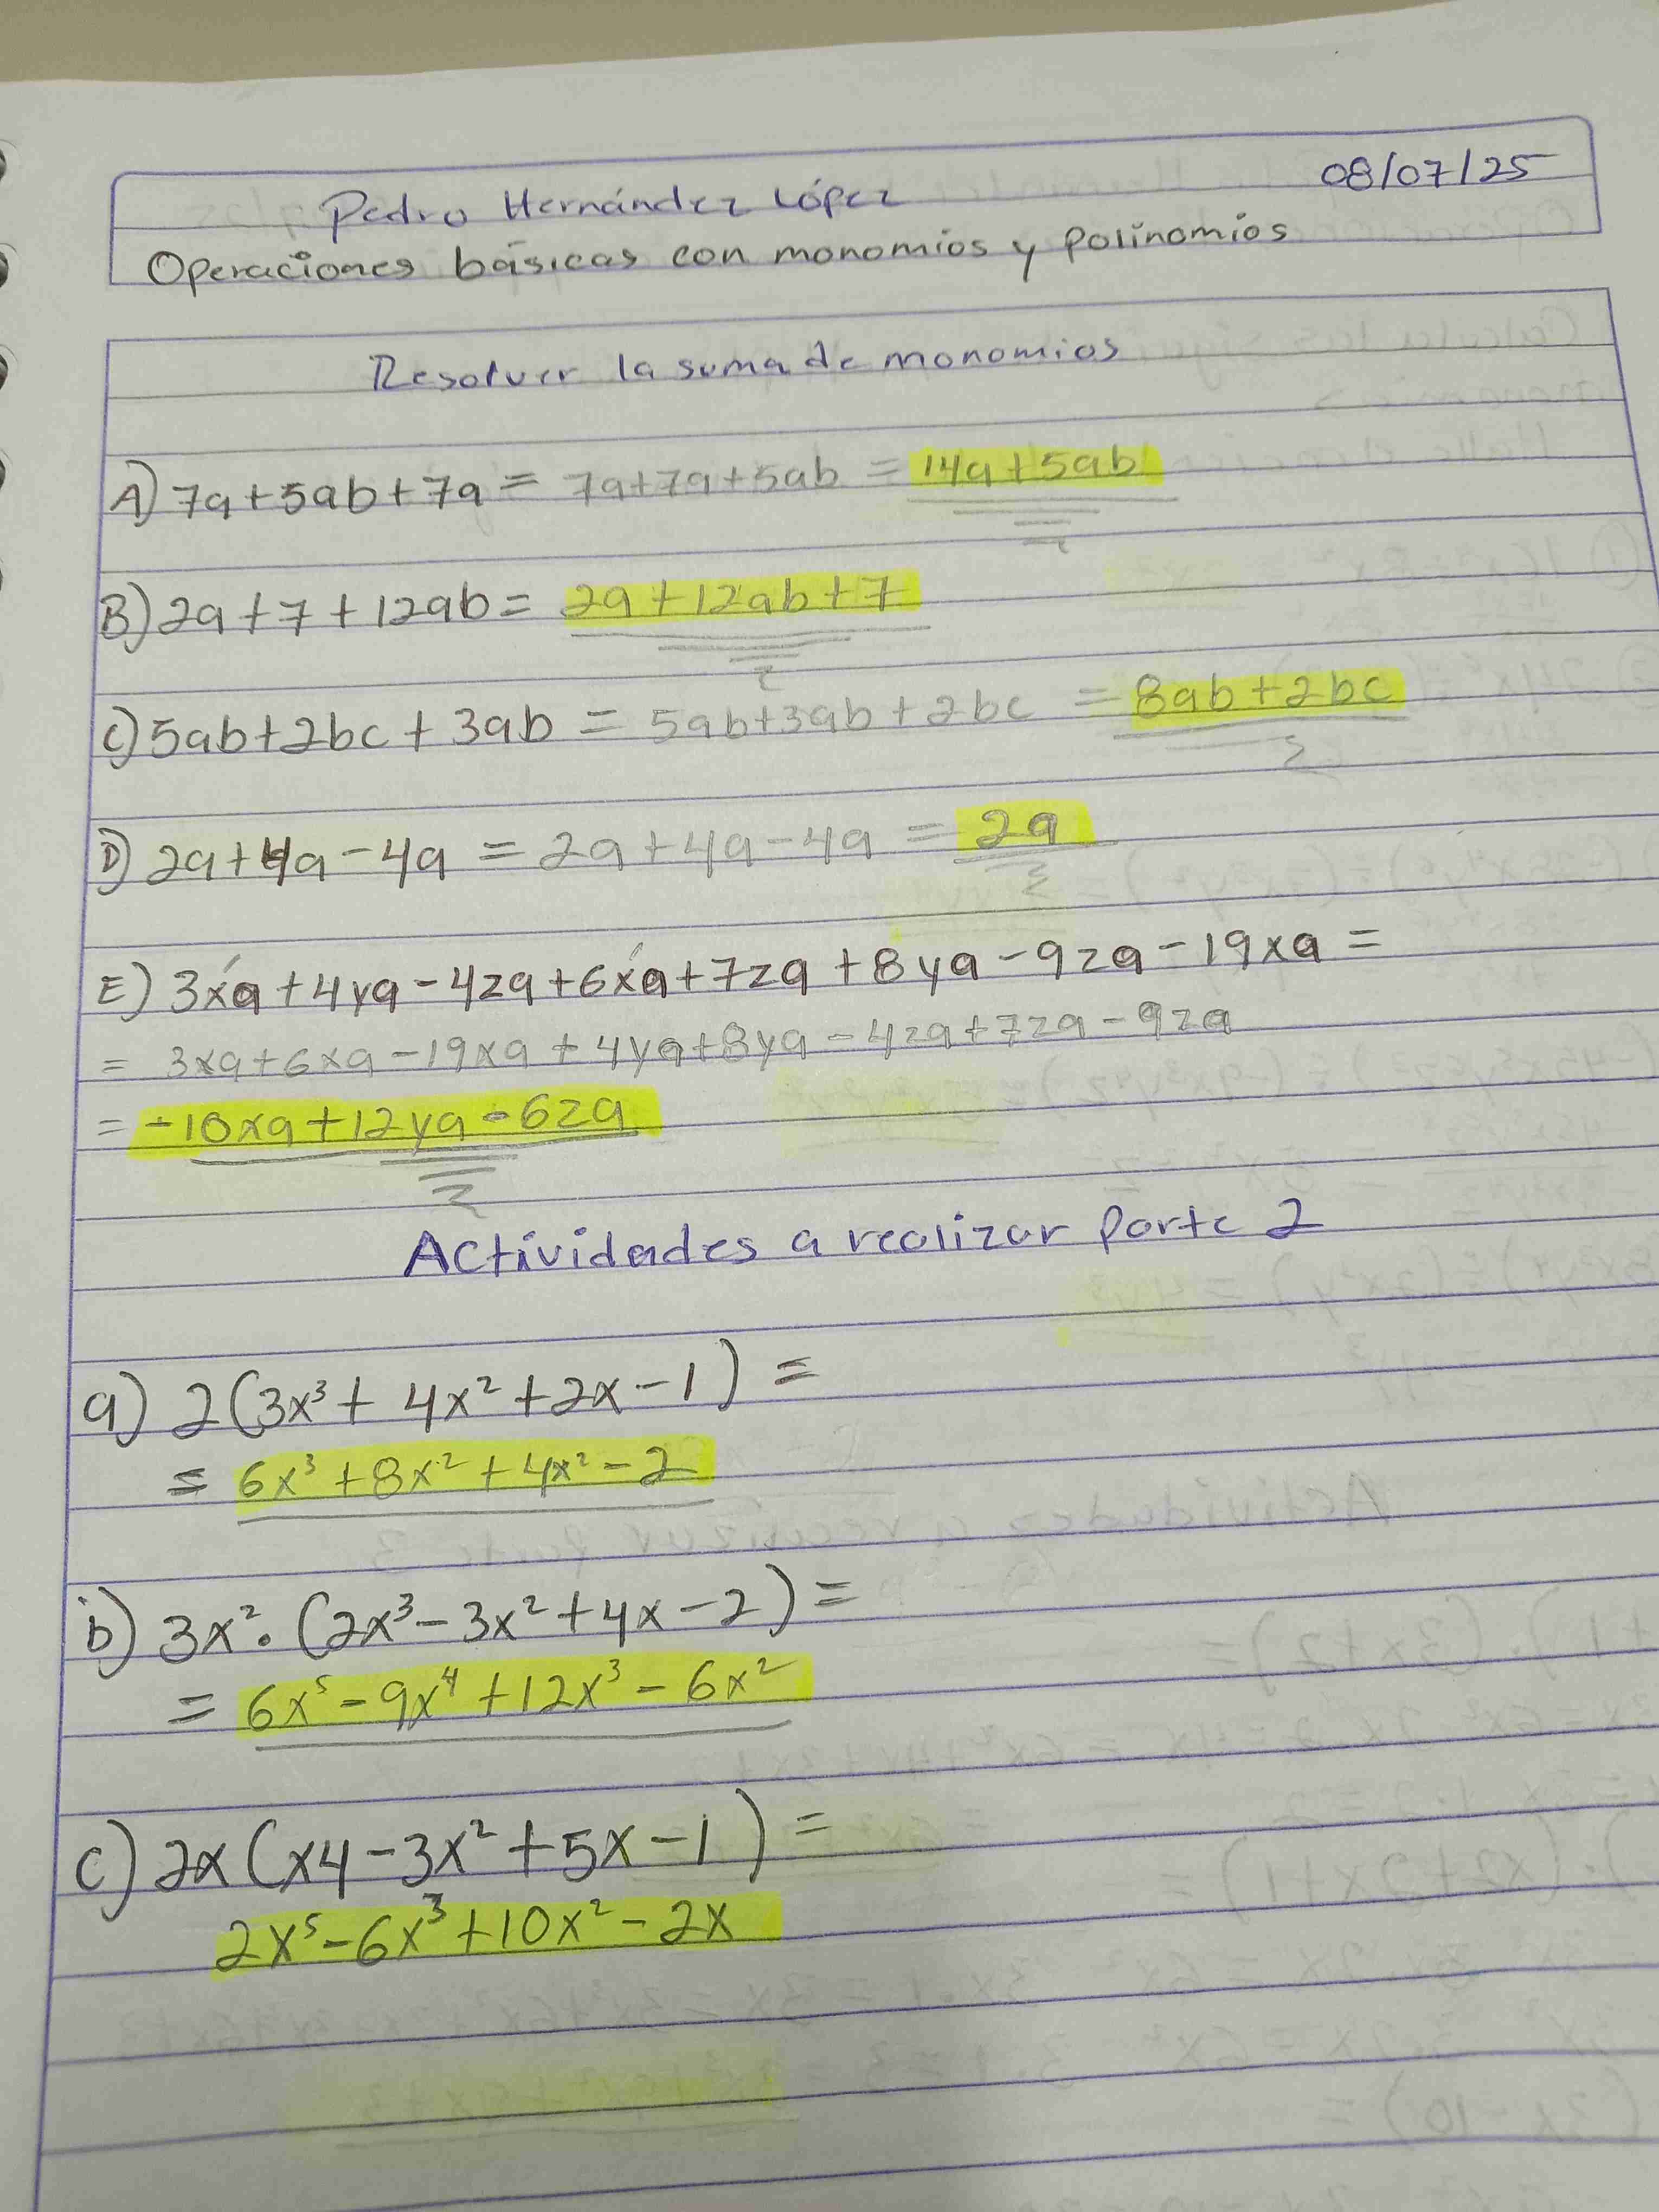 08/07/25
Pedro Hernández López
Operaciones básicas con monomios y polinomios
Resolver la suma de monomios
A) 7a+5ab+7a = 7a+7a+5ab = 14a+5ab
B) 2a+7+12ab = 2a+12ab+7
C) 5ab+2bc+3ab = 5ab+3ab+2bc = 8ab+2bc
D) 2a+4a-4a = 2a+4a-4a = 2a
E) 3xa+4ya-4za+6xa+7za+8ya-9za-19xa =
= 3xa+6xa-19xa+4ya+8ya-4za+7za-9za
= -10xa+12ya-6za
Actividades a realizar parte 2
a) 2(3x³+4x²+2x-1) =
= 6x³+8x²+4x²-2
b) 3x²·(2x³-3x²+4x-2) =
= 6x⁵-9x⁴+12x³-6x²
c) 2x(x4-3x²+5x-1) =
2x⁵-6x³+10x²-2x